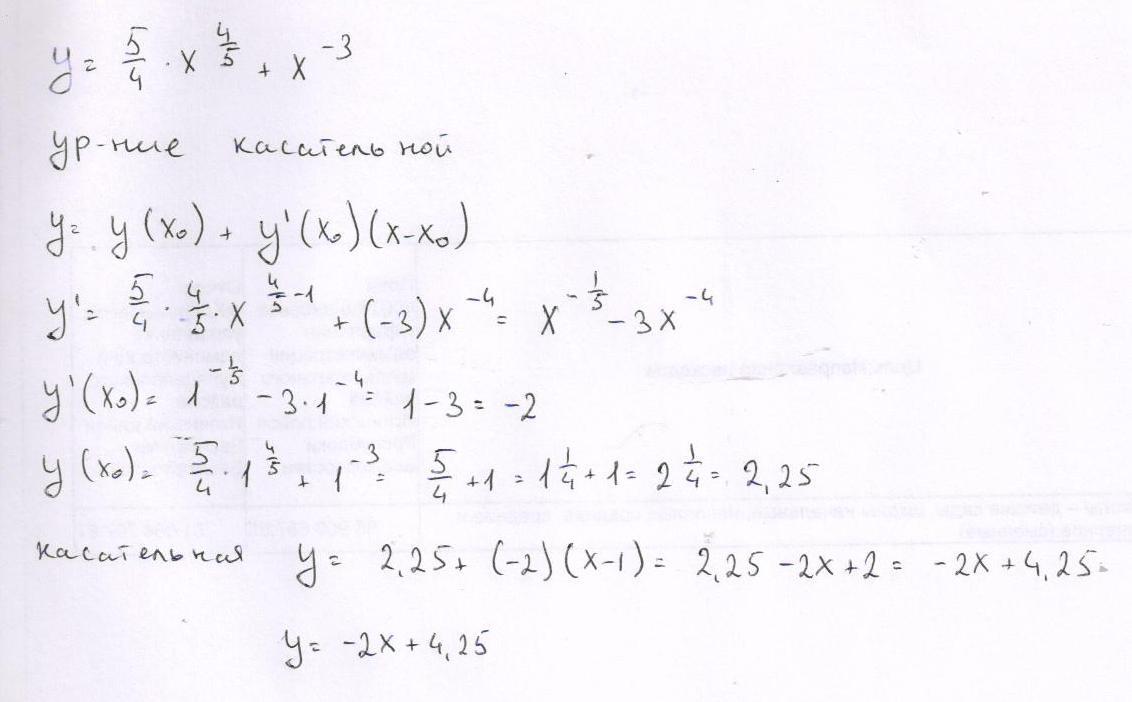 y = 5/4 · x^(4/5) + x^(-3)
ур-ние касательной
y = y(x₀) + y'(x₀)(x-x₀)
y' = 5/4 · 4/5 · x^(4/5 - 1) + (-3)x^(-4) = x^(-1/5) - 3x^(-4)
y'(x₀) = 1^(-1/5) - 3·1^(-4) = 1 - 3 = -2
y(x₀) = 5/4 · 1^(4/5) + 1^(-3) = 5/4 + 1 = 1 1/4 + 1 = 2 1/4 = 2,25
касательная y = 2,25 + (-2)(x-1) = 2,25 - 2x + 2 = -2x + 4,25
y = -2x + 4,25